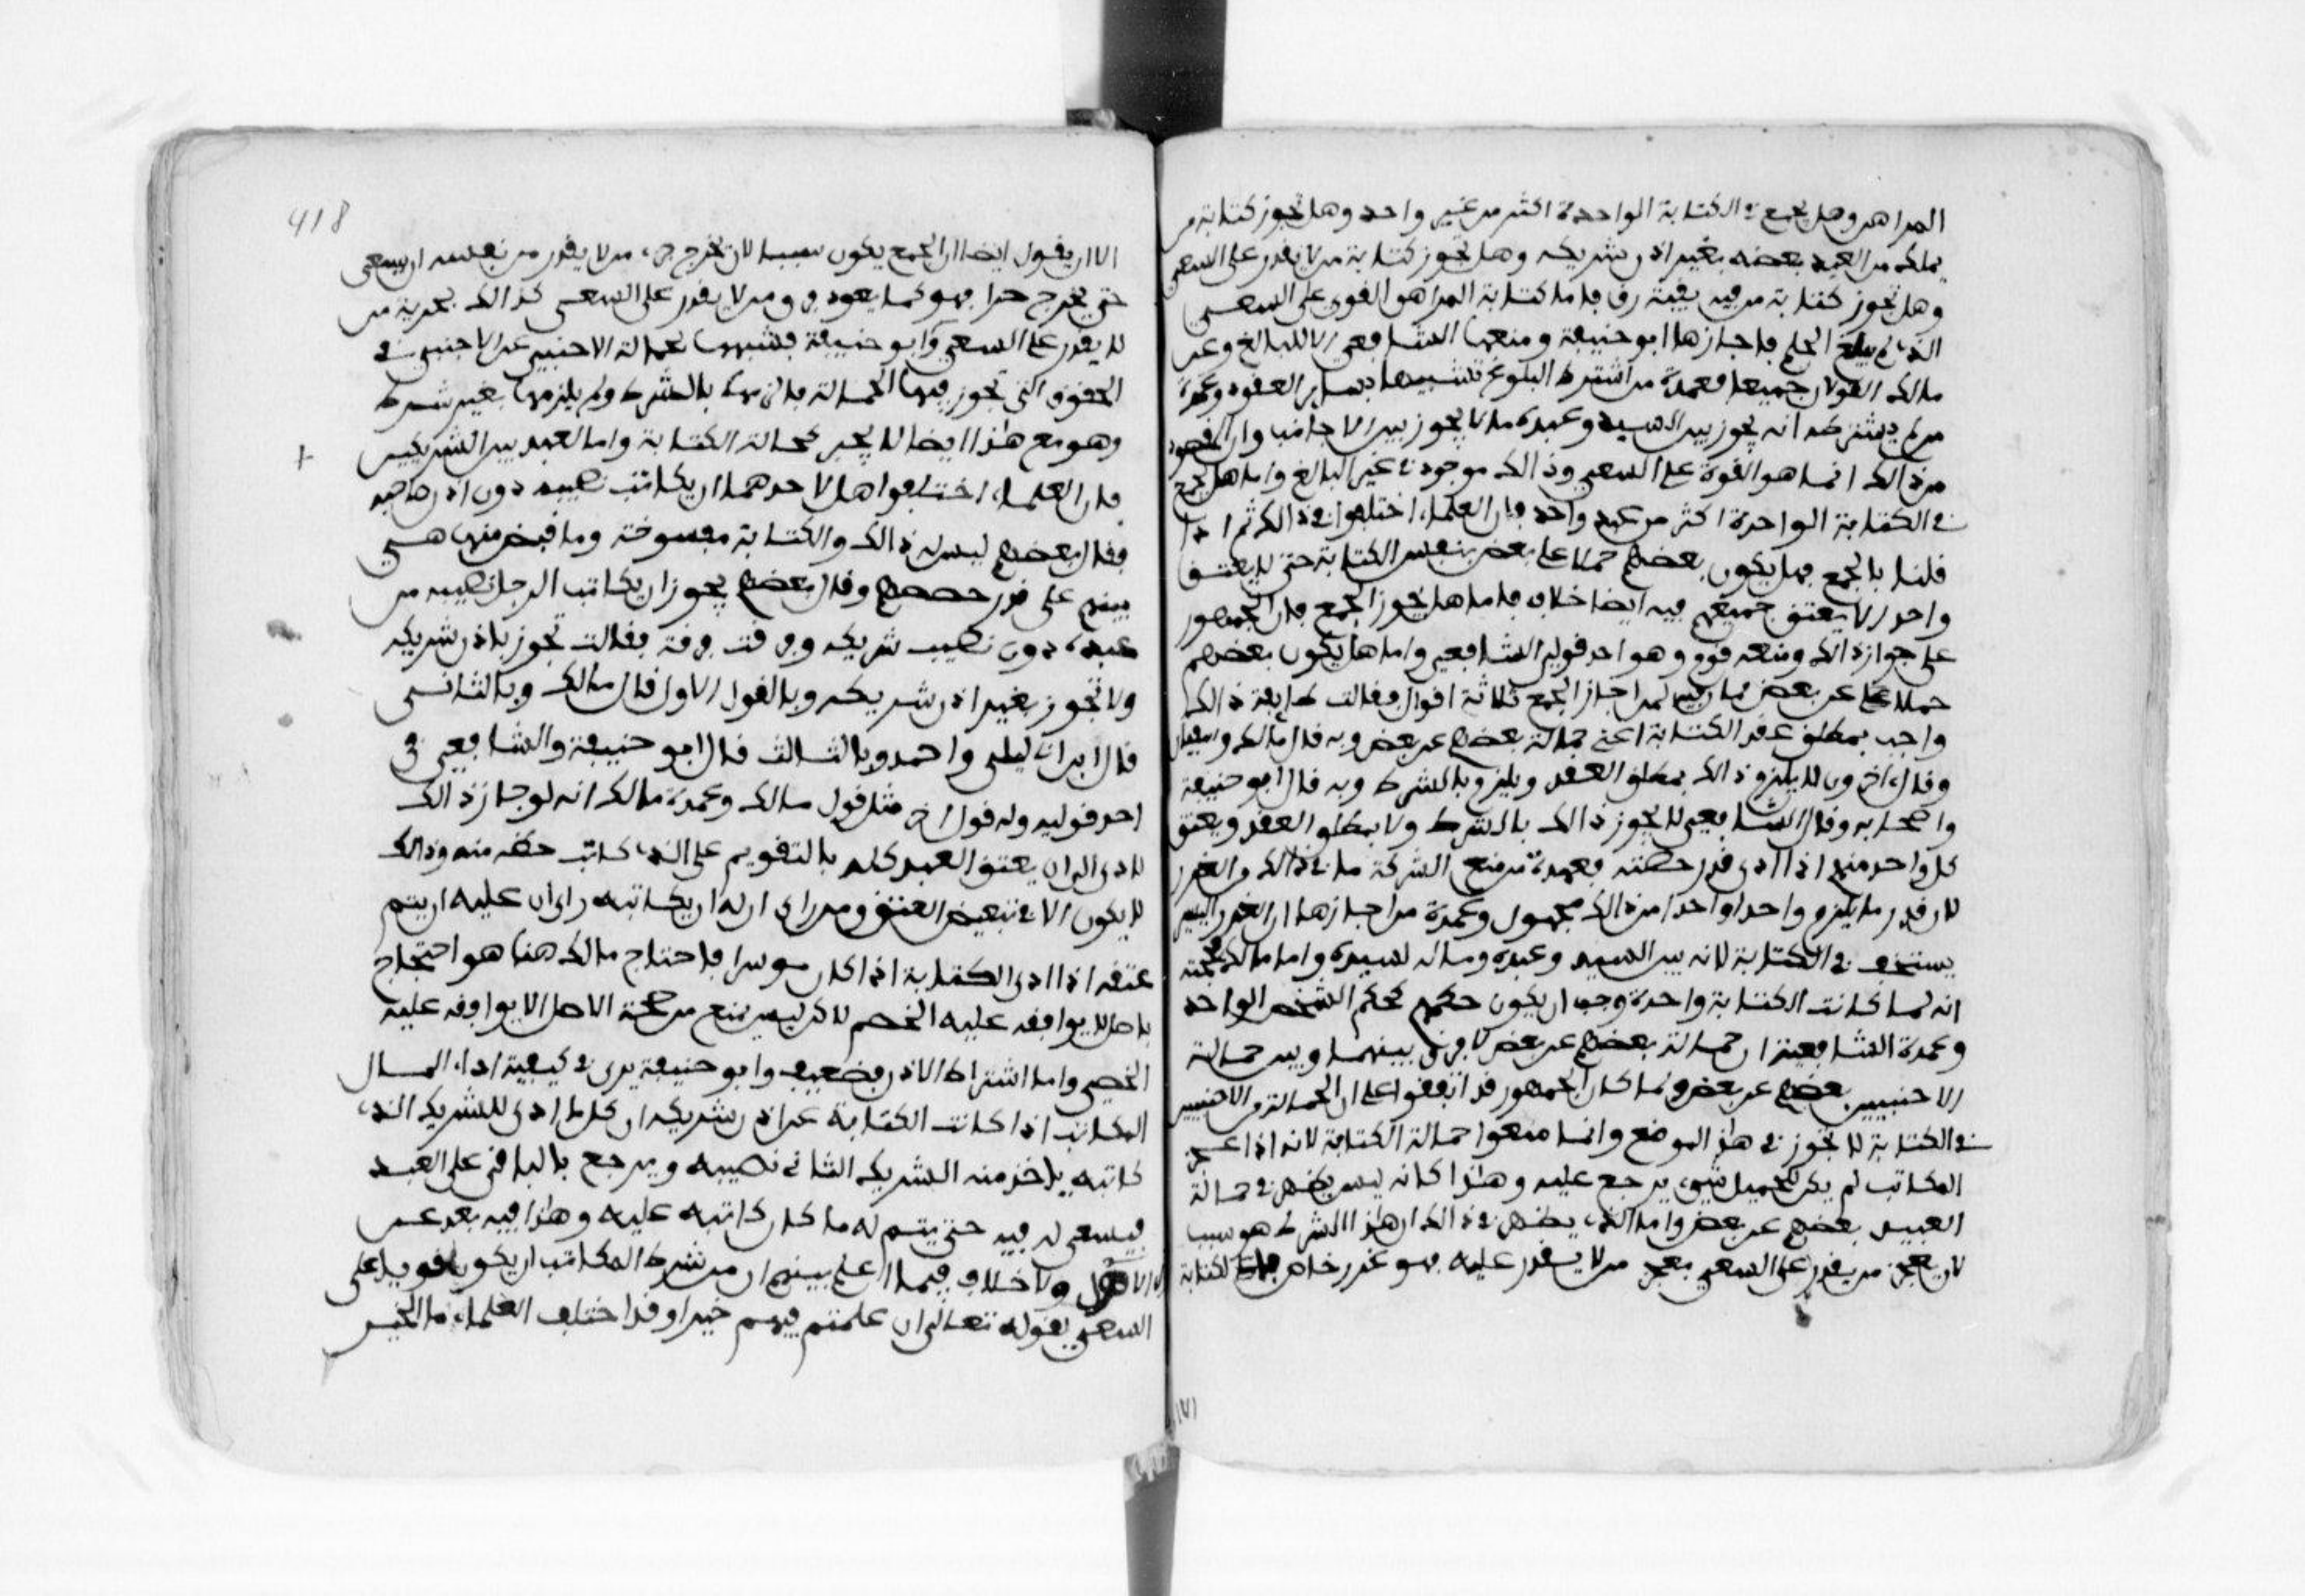 المراهق وهل يجمع في الكتابة الواحدة اكثر من عبد واحد وهل تجوز كتابة من
يملك من العبد بعضه بغير اذن شريكه وهل تجوز كتابة من لا يقدر على السعي
وهل تجوز كتابة من فيه بقية رق فاما كتابة المراهق القوي على السعي
الذي لم يبلغ الحلم فاجازها ابو حنيفة ومنعها الشافعي الا للبالغ وعن
مالك القولان جميعا فعمدة من اشترط البلوغ تشبيهها بساير العقود وعمدة
من لم يشترطه انه يجوز بين السيد وعبده ما لا يجوز بين الاجانب وان المقصود
من ذالك انما هو القوة على السعي وذالك موجود في غير البالغ واما هل يجمع
في الكتابة الواحدة اكثر من عبد واحد فان العلماء اختلفوا في ذالك ثم اذا
قلنا بالجمع فهل يكون بعضهم حملا على بعض بنفس الكتابة حتى لا يعتق
واحد الا بعتق جميعهم فيه ايضا خلاف فاما هل يجوز الجمع فان الجمهور
على جواز ذالك ومنعه قوم وهو احد قولي الشافعي واما هل يكون بعضهم
حملا عن بعض فان فيه لمن اجاز الجمع ثلاثة اقوال فقالت طايفة ذالك
واجب بمطلق عقد الكتابة اعني حمالة بعضهم عن بعض وبه قال مالك وسفيان
وقال اخرون لا يلزم ذالك بمطلق العقد ويلزم بالشرط وبه قال ابو حنيفة
واصحابه وقال الشافعي لا يجوز ذالك بالشرط ولا بمطلق العقد ويعتق
كل واحد منهم اذا ادى قدر حصته فعمدة من منع الشركة ما في ذالك من الغرر
لان قدر ما يلزم واحدا واحدا من ذالك مجهول وعمدة من اجازها ان الغرر اليسير
يستخف في الكتابة لانه بين السيد وعبده وماله لسيده واما مالك فحجته
انه لما كانت الكتابة واحدة وجب ان يكون حكمهم كحكم الشخص الواحد
وعمدة الشافعية ان حمالة بعضهم عن بعض لا فرق بينهما وبين حمالة
الاجنبيين بعضهم عن بعض لما كان الجمهور قد اتفقوا على ان الحمالة من الاجنبيين
في الكتابة لا تجوز في هذا الموضع وانما منعوا حمالة الكتابة لانه اذا عجز
المكاتب لم يكن للحميل شيء يرجع عليه وهذا كانه ليس يظهر في حمالة
العبيد بعضهم عن بعض واما الذي يظهر في ذالك ان هذا الشرط هو سبب
لان يعجز من يقدر على السعي بعجز من لا يقدر عليه فهو غرر خاص بالكتابة
418
الا ان يقول ايضا ان الجمع يكون سببا لان يخرج حرا من لا يقدر من نفسه ان يسعى
حتى يخرج حرا فهو كما يعود برق من لا يقدر على السعي كذالك بحرية من
لا يقدر على السعي وابو حنيفة فشبهها بحمالة الاجنبي عن الاجنبي في
الحقوق التي تجوز فيها الحمالة فالزمها بالشرط ولم يلزمها بغير شرط
وهو مع هذا ايضا لا يجيز حمالة الكتابة واما العبد بين الشريكين
فان العلماء اختلفوا هل لاحدهما ان يكاتب نصيبه دون اذن صاحبه
فقال بعضهم ليس له ذالك والكتابة مفسوخة وما قبض منها هي
بينهم على قدر حصصهم وقال بعضهم يجوز ان يكاتب الرجل نصيبه من
عبده دون نصيب شريكه وفرقت فرقة فقالت تجوز باذن شريكه
ولا تجوز بغير اذن شريكه وبالقول الاول قال مالك وبالثاني
قال ابن ابي ليلى واحمد وبالثالث قال ابو حنيفة والشافعي في
احد قوليه وله قول اخر مثل قول مالك وعمدة مالك انه لو جاز ذالك
لادى الى ان يعتق العبد كله بالتقويم على الذي كاتب حظه منه وذالك
لا يكون الا في تبعيض العتق ومن راى ان له ان يكاتبه راى ان عليه ان يتم
عتقه اذا ادى الكتابة اذا كان موسرا فاحتاج مالك هنا هو احتجاج
باصل لا يوافقه عليه الخصم لاكن ليس يمنع من صحة الاصل الا يوافقه عليه
الخصم واما اشتراط الاذن فضعيف وابو حنيفة يرى في كيفية اداء المال
المكاتب اذا كانت الكتابة عن اذن شريكه ان كل ما ادى للشريك الذي
كاتبه ياخذ منه الشريك الثاني نصيبه ويرجع بالباقي على العبد
فيسعى له فيه حتى يتم له ما كان كاتبه عليه وهذا فيه بعد عن
الاصول ولا خلاف فيما اعلم بينهم ان من شرط المكاتب ان يكون قويا على
السعي لقوله تعالى ان علمتم فيهم خيرا وقد اختلف العلماء ما الخير